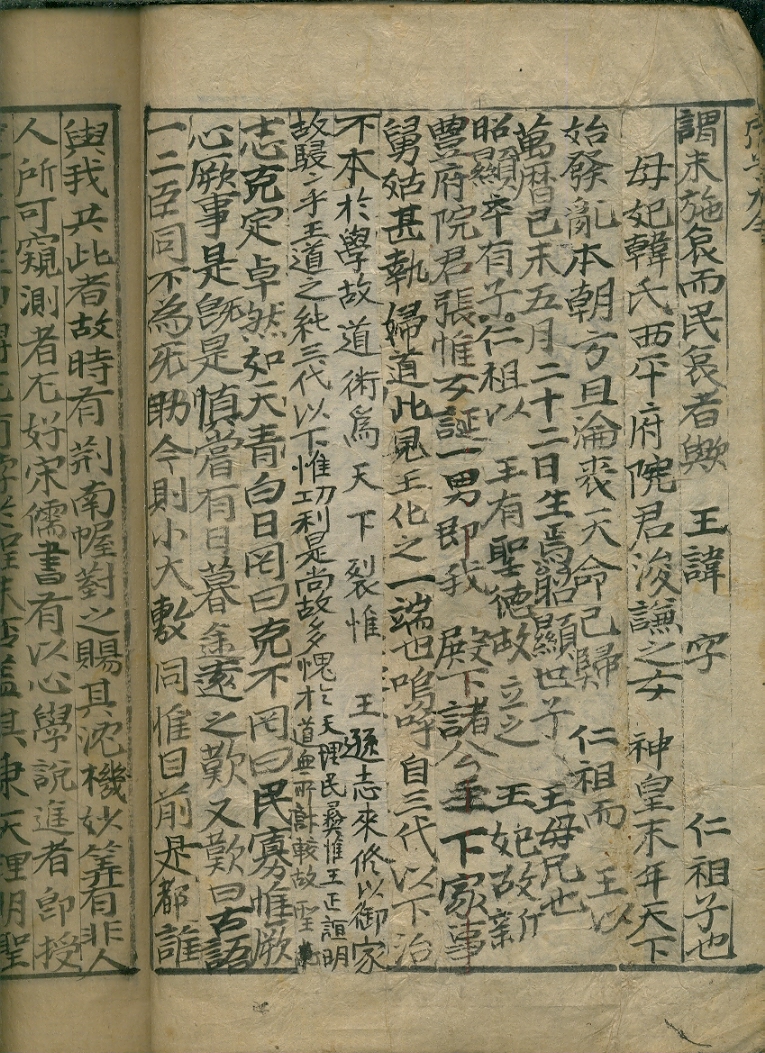 謂未施哀而民哀者歟 王諱 字 仁祖子也
母妃韓氏西平府院君浚謙之女 神皇末年天下
始發亂本朝方且淪喪天命已歸 仁祖而 王以
萬曆己未五月二十二日生焉昭顯世子 王母兄也
昭顯卒有子仁祖以 王有聖德故立之 王妃故新
豊府院君張惟女誕一男即我 殿下諸公主下家事
舅姑甚執婦道此見王化之一端也嗚呼自三代以下治
不本於學故道術爲天下裂惟 王遜志來修以御家
故駸〻乎王道之純三代以下惟功利是尚故多愧於天理民彝惟王正誼明
道無所計較故聖
志克定卓然如天青白日罔曰克不罔曰民寡惟厥
心厥事是旣是愼嘗有日暮途遠之歎又歎曰古語
一二臣同不為無助今則小大敷同惟目前是都誰
與我共此者故時有荊南幄對之賜其沈機妙筭有非人
人所可窺測者尤好宋儒書有以心學說進者即授